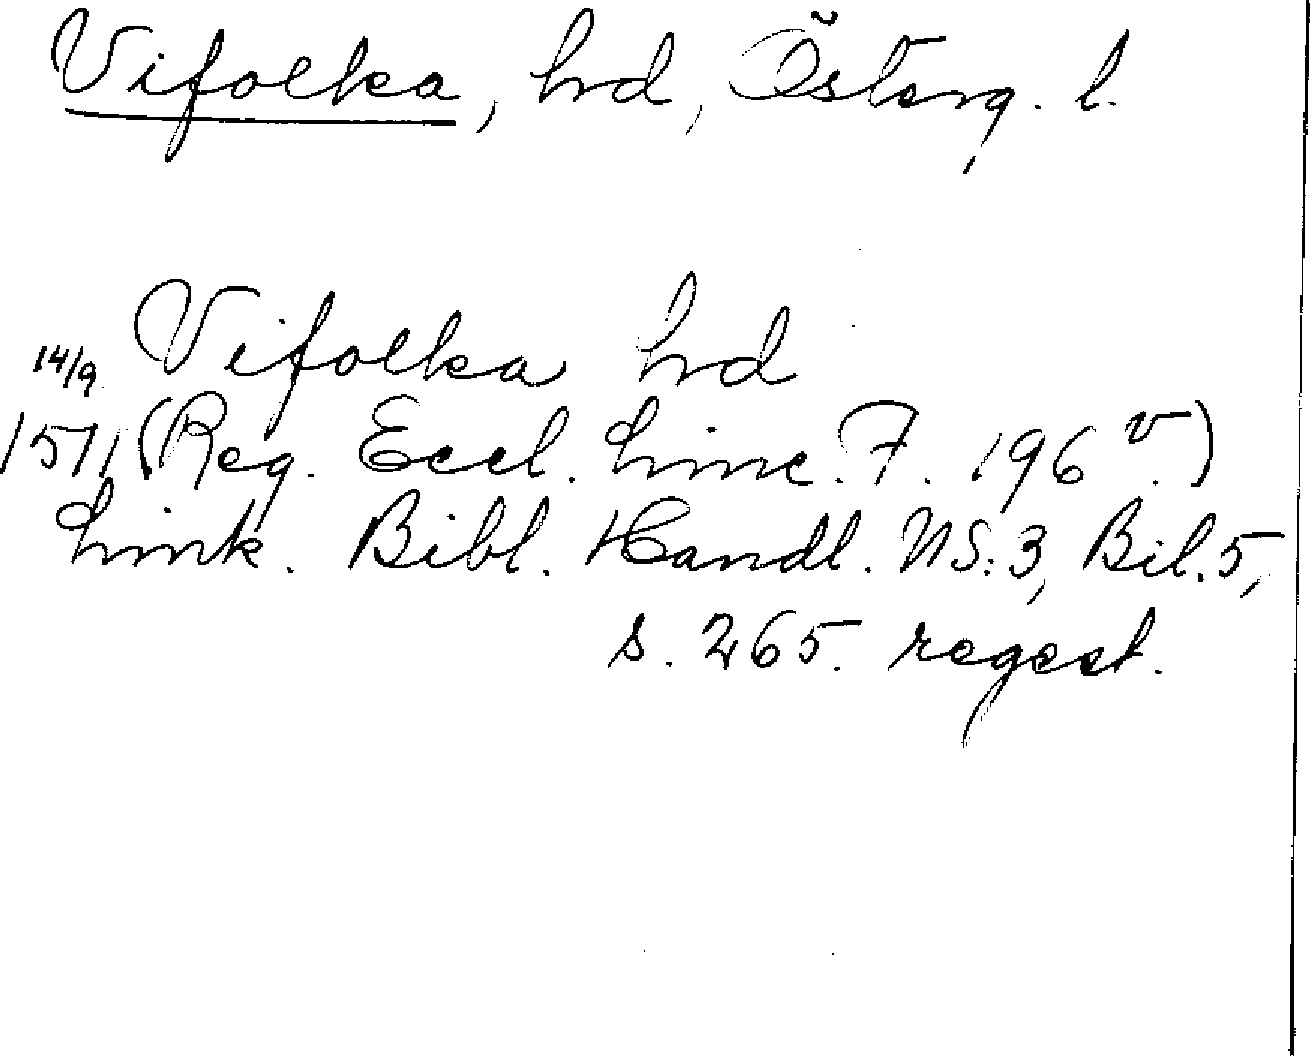 Vifolka, hd, Österg. l.
Vifolka hd
14/9
1571 (Reg. Eccl. Linc. F. 196 v.)
Link. Bibl. Handl. NS:3, Bil. 5,
s. 265. regest.